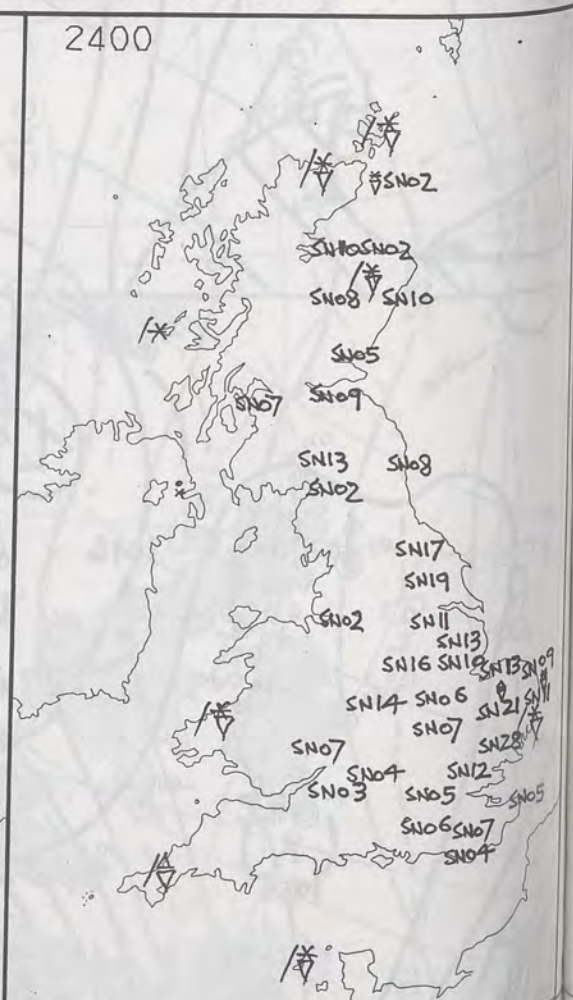 2400
SN02
SN02
SN08 SN10
SN05
SN07 SN09
SN13 SN08
SN02
SN17
SN19
SN02 SN11
SN13
SN16 SN19 SN13 SN09
SN14 SN06 SN21 SN11
SN07
SN07 SN28
SN04 SN12
SN03 SN05 SN05
SN06 SN07
SN04